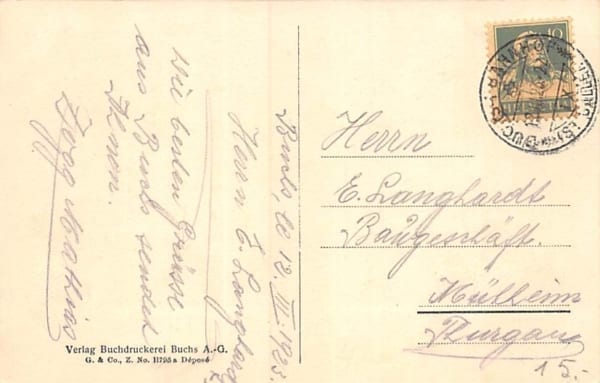 Buchs, de 12. III. 1923.
Herrn E. Langhardt
Die besten Grüsse
aus Buchs sendet
Ihnen.
Verlag Buchdruckerei Buchs A.-G.
G. & Co., Z. No. 11795a Déposé
10
BAHNHOF
BUCHS (ST. GALLEN)
Herrn
E. Langhardt
Baugeschäft.
Müllheim
Thurgau
15.-